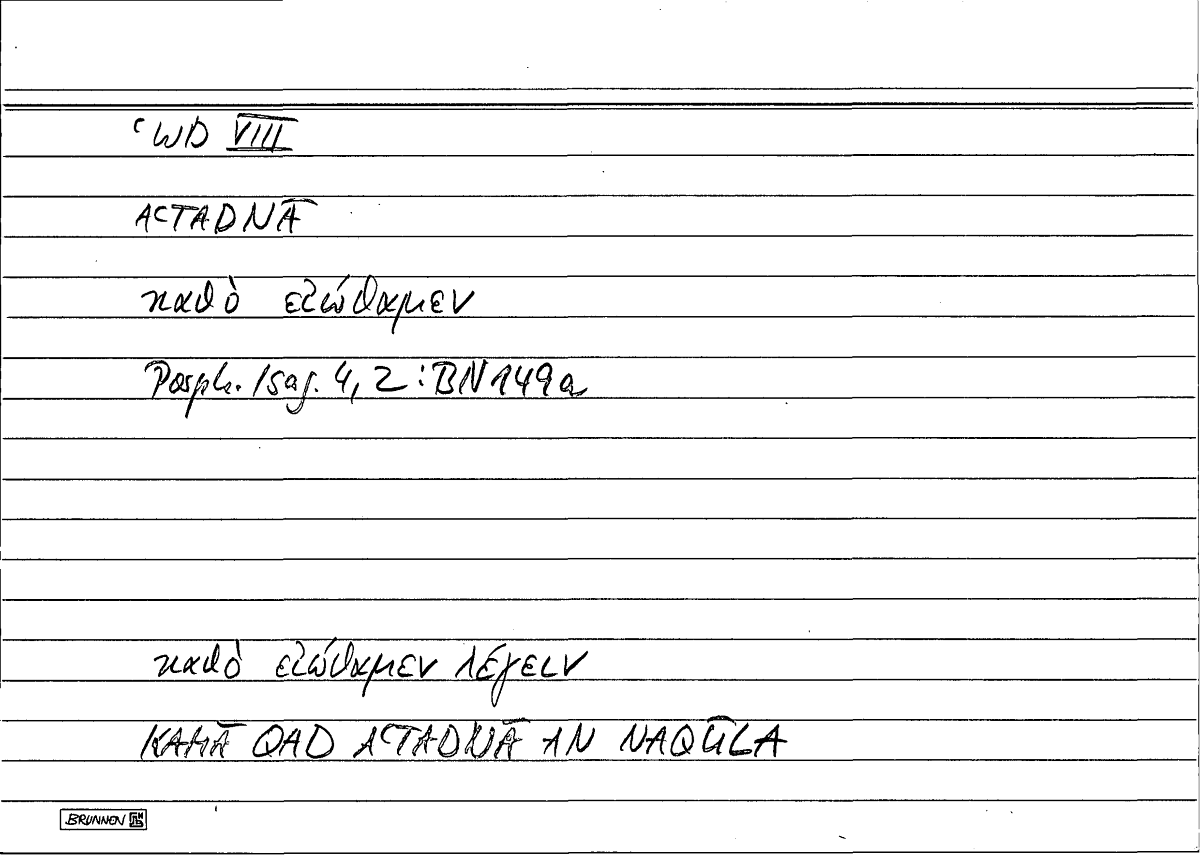 ʿWD VIII
AʿTADNĀ
καθὸ εἰώθαμεν
Porph. Isag. 4, 2 : BN 149a
καθὸ εἰώθαμεν λέγειν
KAMĀ QAD AʿTADNĀ AN NAQŪLA
BRUNNEN